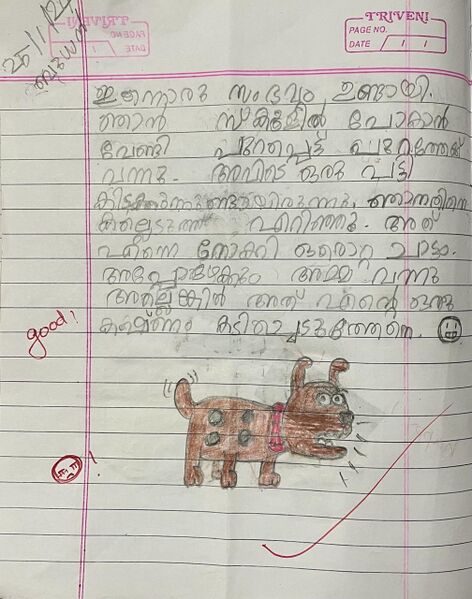 TRIVENI
PAGE NO.
DATE / /
ബുധൻ
ഇന്നൊരു സംഭവം ഉണ്ടായി.
ഞാൻ സ്കൂളിൽ പോകാൻ
വേണ്ടി പുറപ്പെട്ട് പുറത്തേക്ക്
വന്നു. അവിടെ ഒരു പട്ടി
കിടക്കുന്നുണ്ടായിരുന്നു. ഞാനതിനെ
കല്ലെടുത്ത് എറിഞ്ഞു. അത്
എന്നെ നോക്കി ഒരൊറ്റ ചാട്ടം.
അപ്പോഴേക്കും അമ്മ വന്നു
അല്ലെങ്കിൽ അത് എന്റെ ഒരു
കഷ്ണം കടിച്ചെടുത്തേനെ.
good!